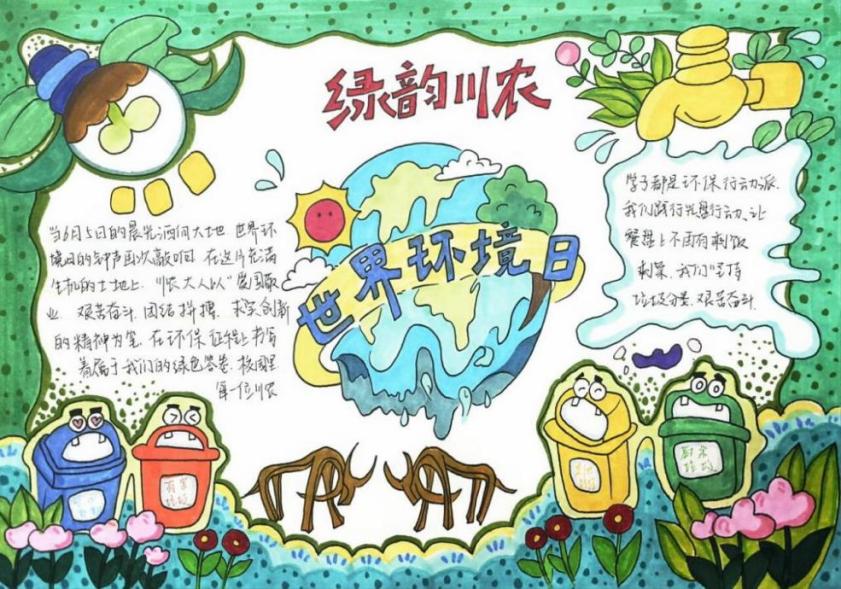 绿韵川农
世界环境日
当6月5日的晨光洒向大地 世界环
境日的钟声再次敲响. 在这片充满
生机的土地上. "川农大人以"爱国敬
业. 艰苦奋斗. 团结拼搏. 求实创新
的精神为笔. 在环保征程上书写
着属于我们的绿色答卷. 校园里
每一位川农
学子都是环保行动派.
我们践行光盘行动、让
餐盘上不留有剩饭
剩菜. 我们坚持
垃圾分类. 艰苦奋斗.
有害
垃圾
其他
垃圾
厨余
垃圾